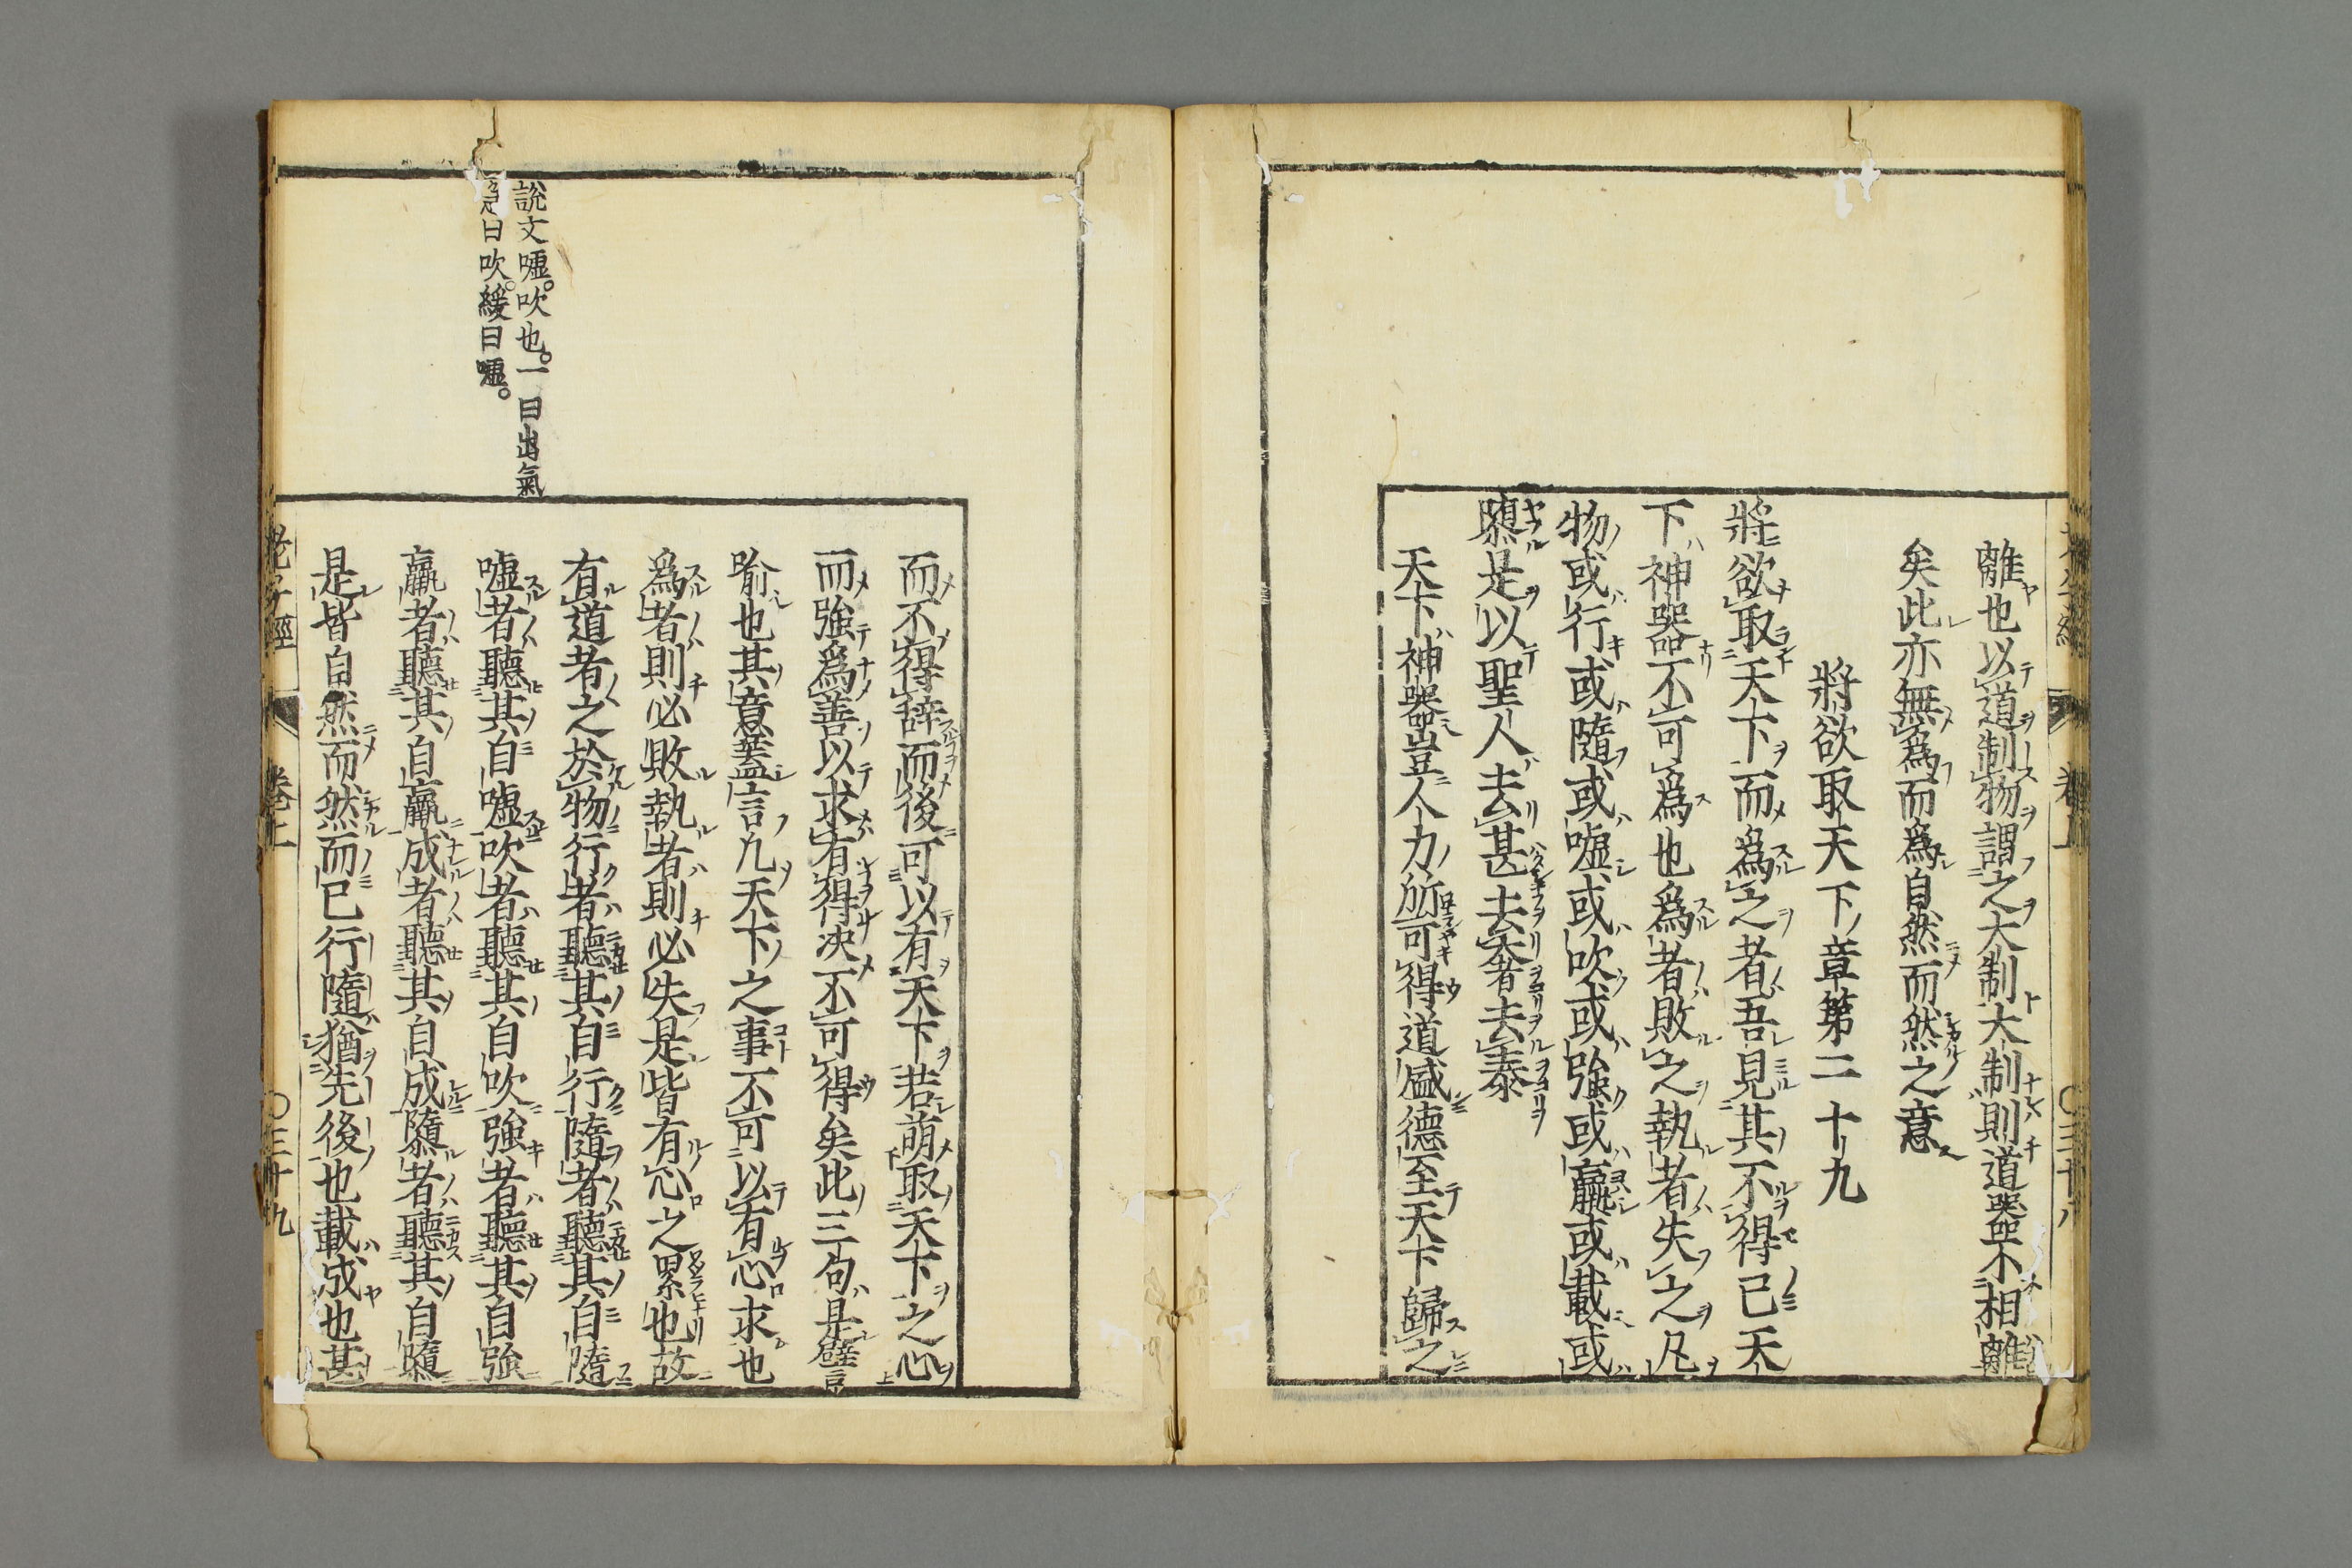 離也以道制物謂之大制大制則道器不相離
矣此亦無爲而爲自然而然之意
將欲取天下章第二十九
將欲取天下而爲之者吾見其不得已天
下神器不可爲也爲者敗之執者失之凡
物或行或隨或噓或吹或強或羸或載或
隳是以聖人去甚去奢去泰
天下神器豈人力所可得道盛德至天下歸之
而不得辭而後可以有天下若萌取天下之心
而強爲善以求有得决不可得矣此三句是譬
喻也其意蓋言凢天下之事不可以有心求也
爲者則必敗執者則必失是皆有心之累也故
有道者之於物行者聽其自行隨者聽其自隨
噓者聽其自噓吹者聽其自吹強者聽其自強
羸者聽其自羸成者聽其自成隳者聽其自隳
是皆自然而然而已行隨猶先後也載成也甚
說文噓。吹也。一曰出氣
曰吹。緩曰噓。
老子經 卷上 〇三十九